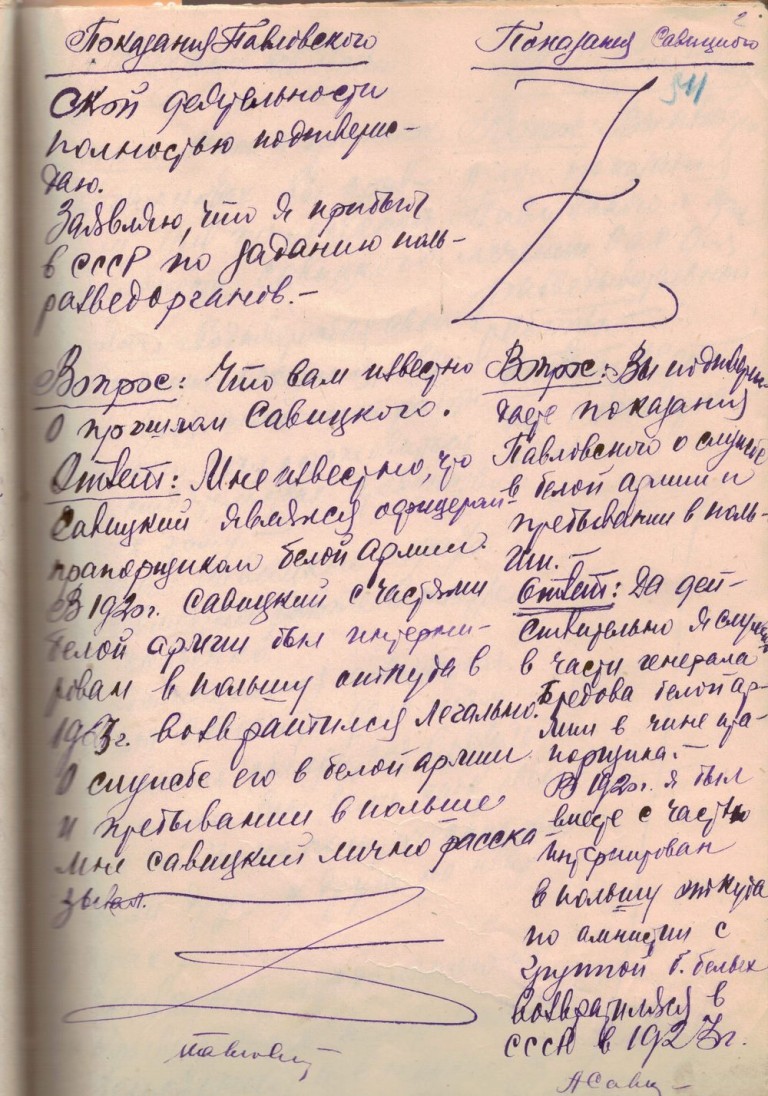 2
Показания Павловского
ской деятельности
полностью подтверж-
даю.
Заявляю, что я прибыл
в СССР по заданию поль-
разведорганов. –
Вопрос: Что вам известно
о прошлом Савицкого.
Ответ: Мне известно, что
Савицкий являлся офицером-
прапорщиком белой армии.
В 1920г. Савицкий с частями
белой армии был интерни-
рован в польшу откуда в
1923г. возвратился легально.
О службе его в белой армии
и пребывании в польше
мне Савицкий лично расска-
зывал.
Показания Савицкого
Вопрос: Вы подтверж-
даете показания
Павловского о службе
в белой армии и
пребывании в поль-
ши. –
Ответ: Да дей-
ствительно я служил
в части генерала
Бредова белой ар-
мии в чине пра-
порщика. –
В 1920г. я был
вместе с частью
интернирован
в польшу откуда
по амнистии с
группой б. белых
возвратился в
СССР в 1923г.